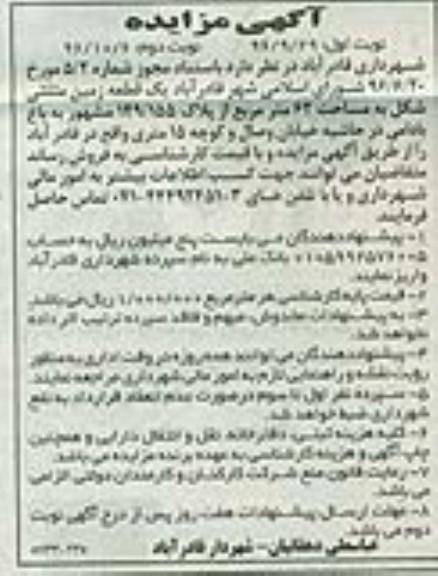 آگهی مزایده
نوبت اول: ۹۶/۹/۲۹ نوبت دوم: ۹۶/۱۰/۶
شهرداری قادرآباد در نظر دارد باستناد مجوز شماره ۵/۲ مورخ
۹۶/۷/۲۰ شورای اسلامی شهر قادرآباد یک قطعه زمین مثلثی
شکل به مساحت ۶۲ متر مربع از پلاک ۱۴۹/۱۵۵ مشهور به باغ
بادامی در حاشیه خیابان وصال و کوچه ۱۵ متری واقع در قادرآباد
را از طریق آگهی مزایده و با قیمت کارشناسی به فروش رساند
متقاضیان می توانند جهت کسب اطلاعات بیشتر به امور مالی
شهرداری و یا با تلفن های تماس حاصل
فرمایند.
۱- پیشنهاد دهندگان می بایست پنج میلیون ریال به حساب
بانک ملی به نام سپرده شهرداری قادرآباد
واریز نمایند.
۲- قیمت پایه کارشناسی هر متر مربع ۱/۰۰۰/۰۰۰ ریال می باشد.
۳- به پیشنهادات مخدوش، مبهم و فاقد سپرده ترتیب اثر داده
نخواهد شد.
۴- پیشنهاد دهندگان می توانند همه روزه در وقت اداری به منظور
رویت نقشه و راهنمایی لازم به امور مالی شهرداری مراجعه نمایند.
۵- سپرده نفر اول تا سوم در صورت عدم انعقاد قرارداد به نفع
شهرداری ضبط خواهد شد.
۶- کلیه هزینه ثبتی، دفترخانه، نقل و انتقال دارایی و همچنین
چاپ آگهی و هزینه کارشناسی به عهده برنده مزایده می باشد.
۷- رعایت قانون منع شرکت کارکنان و کارمندان دولتی الزامی
می باشد.
۸- مهلت ارسال پیشنهادات هفت روز پس از درج آگهی نوبت
دوم می باشد.
عباسعلی دهقانیان - شهردار قادرآباد